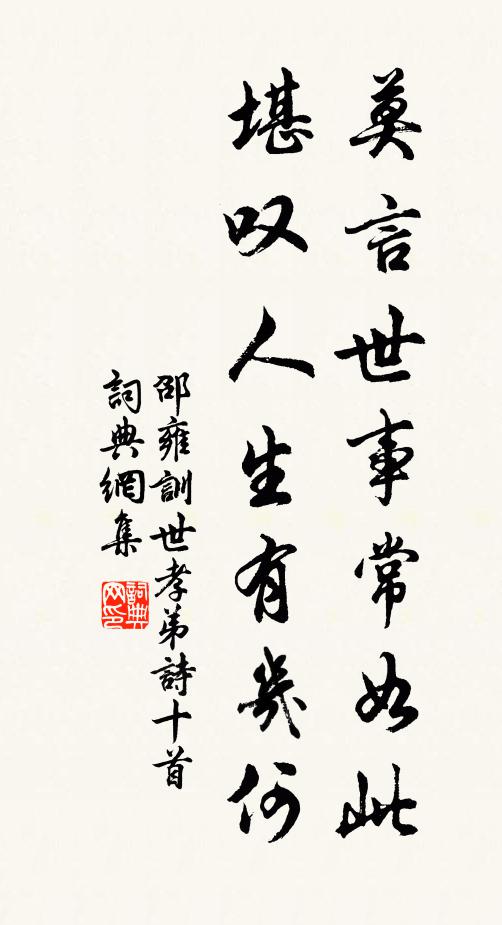 莫言世事常如此
堪叹人生有幾何
邵雍訓世孝弟詩十首
詞典網集
詞典网印